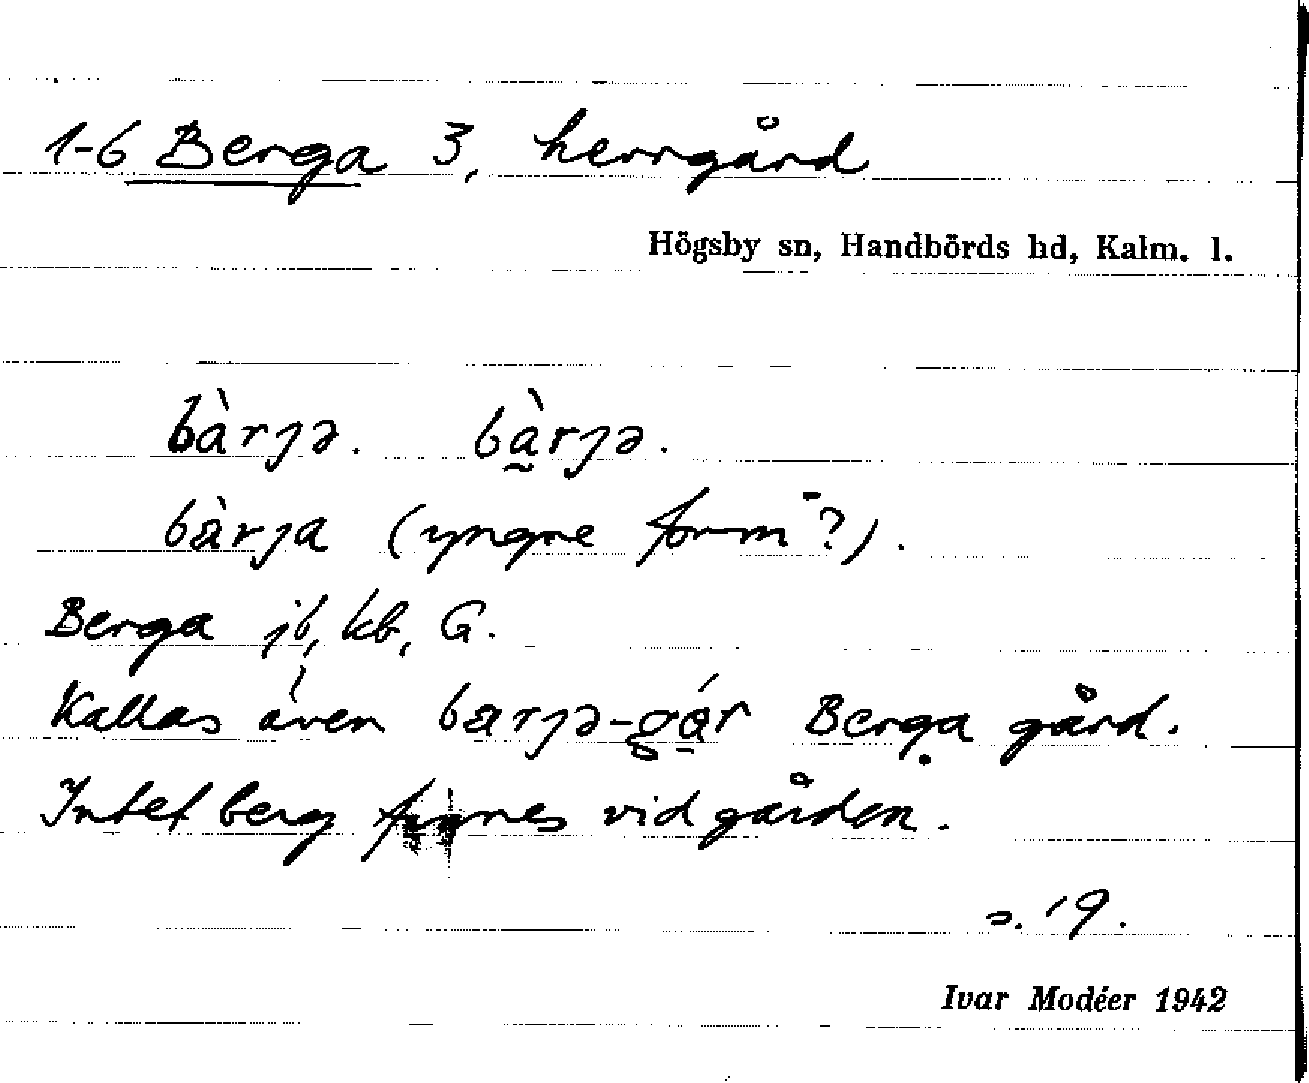 1-6 Berga 3, herrgård
Högsby sn, Handbörds hd, Kalm. l.
bàrȷə. bà̰rȷə.
bàrȷa (yngre form?).
Berga jb, kb, G.
Kallas även barȷə-gá̱r Berga gård.
Intet berg finnes vid gården.
s. 19.
Ivar Modéer 1942